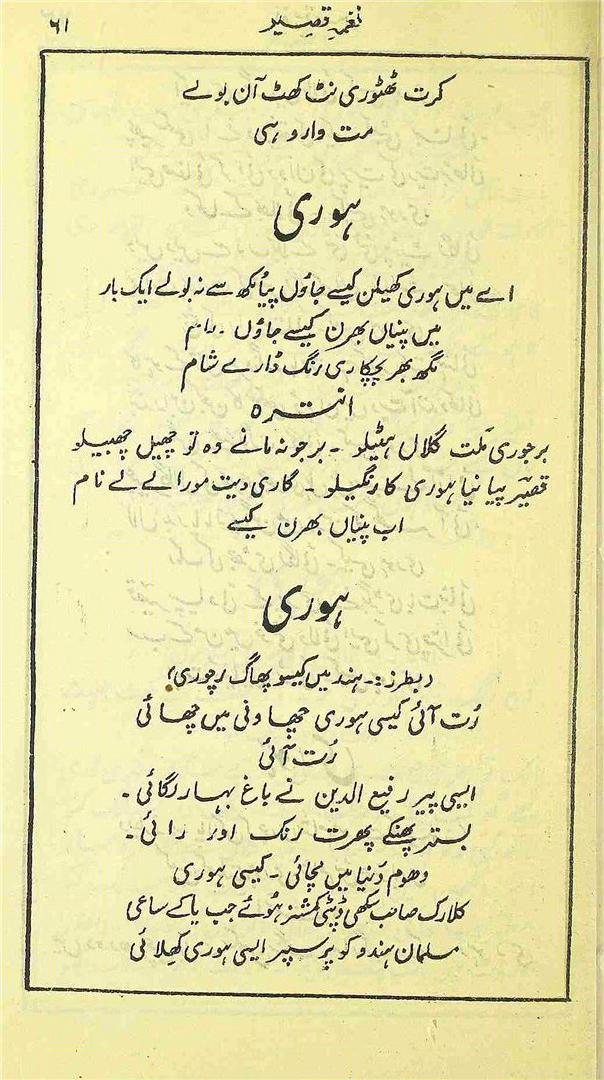 نغمہ قصیر
۶۱
کرت ٹھٹوری نٹ کھٹ آن بولے
مت وارو ہی
ہوری
اے میں ہوری کھیلن کیسے جاؤں پیا مُکھ سے نہ بولے ایک بار
میں پنیاں بھرن کیسے جاؤں ۔ رام
مُکھ بھر پچکاری رنگ ڈارے شام
انترہ
برجوری مَلت گلال ہٹیلو ۔ برجو نہ مانے وہ تو چھیل چھبیلو
قصیرؔ پیا نیا ہوری کا رنگیلو ۔ گاری دیت مورا لے لے نام
اب پنیاں بھرن کیسے
ہوری
(بطرز:۔ ہند میں کیسو پھاگ رچوری)
رُت آئی کیسی ہوری چھاونی میں چھائی
رُت آئی
ایسی پیر رفیع الدین نے باغ بہار لگائی ۔
بستر پھنکے پھرت رنک اور رائی ۔
دھوم دُنیا میں مچائی ۔ کیسی ہوری
کلارک صاحب سکھی ڈپٹی کمشنر ہُوئے جب یاکے ساعی
مسلمان ہندو کو پرسپر ایسی ہوری کھِلائی